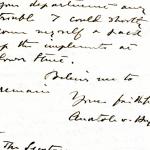 your department any
trouble I could shortly
come myself & pack
up the implements at
lower
Believe me to
remain
Your faithf
Anatole v. Hüg
The Secreta